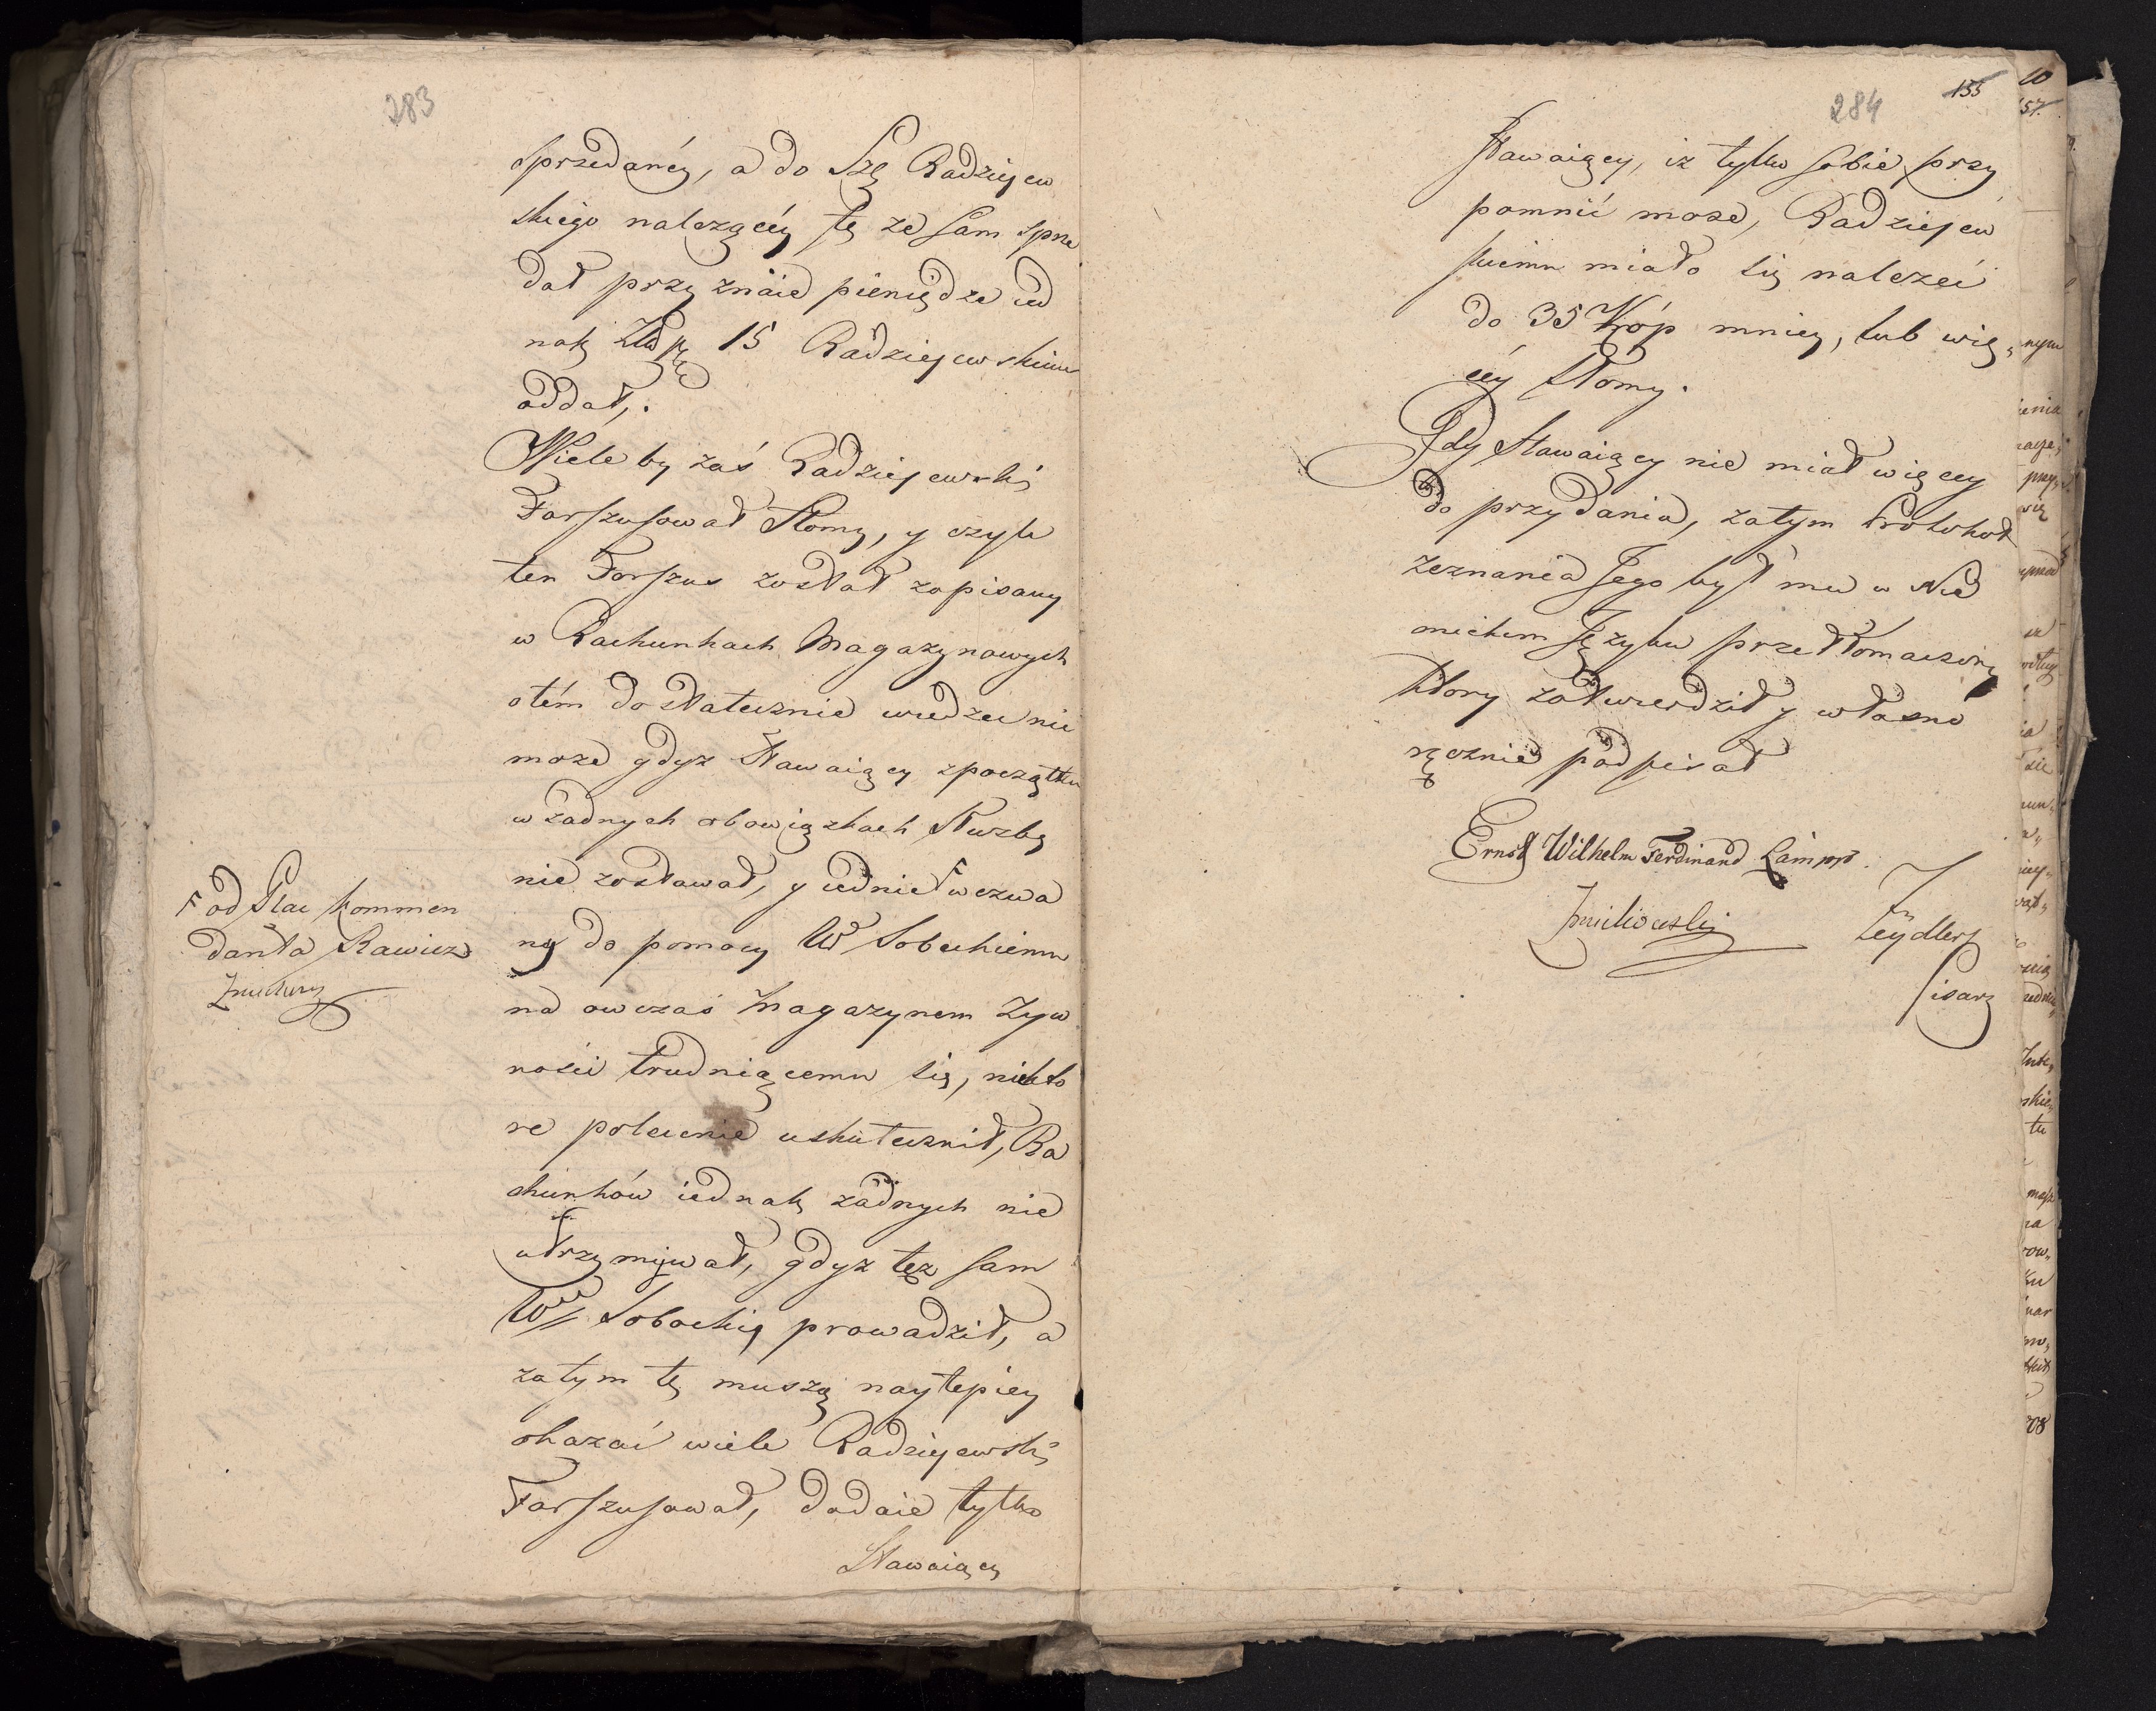 283
sprzedanéy, a do Sze Radzieiew
skiego nalezącéy tę ze sam sprze
dał przyznaie pieniądze ied
nak Złłp 15 Radzieiewskiemu
oddał,.
Wiele by zaś Radzieiewski
Forszusował Słomy, y czyli
ten Forszus został zapisany
w Rachunkach Magazynowych
otém dostatecznie wiedzeć nie
moze gdyz Stawaiący zpoczątku
w żadnych obowiązkach Służby
nie zostawał, y iednie ⌈ wezwa
ny do pomocy W Sobeckiemu
na owczas Magazynem Zyw
ności trudniącemu się, niekto
re polecenie uskutecznił, Ra
chunków iednak żadnych nie
utrzymywał, gdyz tęz sam
W Sobocki prowadził, a
zatym tę muszą naylepiey
okazać wiele Radzieiewski
Forszusował, dodaie tylko
Stawaiący
⌈ od Plac Kommen
danta Rawicz
284
155
Stawaiący, iz tylko sobie przy
pomnić moze, Radzieiew
skiemu miało się nalezeć
do 35 Kóp mniey, lub wię
céy Słomy.
Gdy Stawaiący nie miał więcey
do przydania, zatym Protokoł
zeznania Jego był mu w Nie
mieckim Języku przetłomaczony
ktory zatwierdził y własno
ręcznie podpisał
Ernst Wilhelm Ferdinand Lampp.
Zeydler
Pisarz